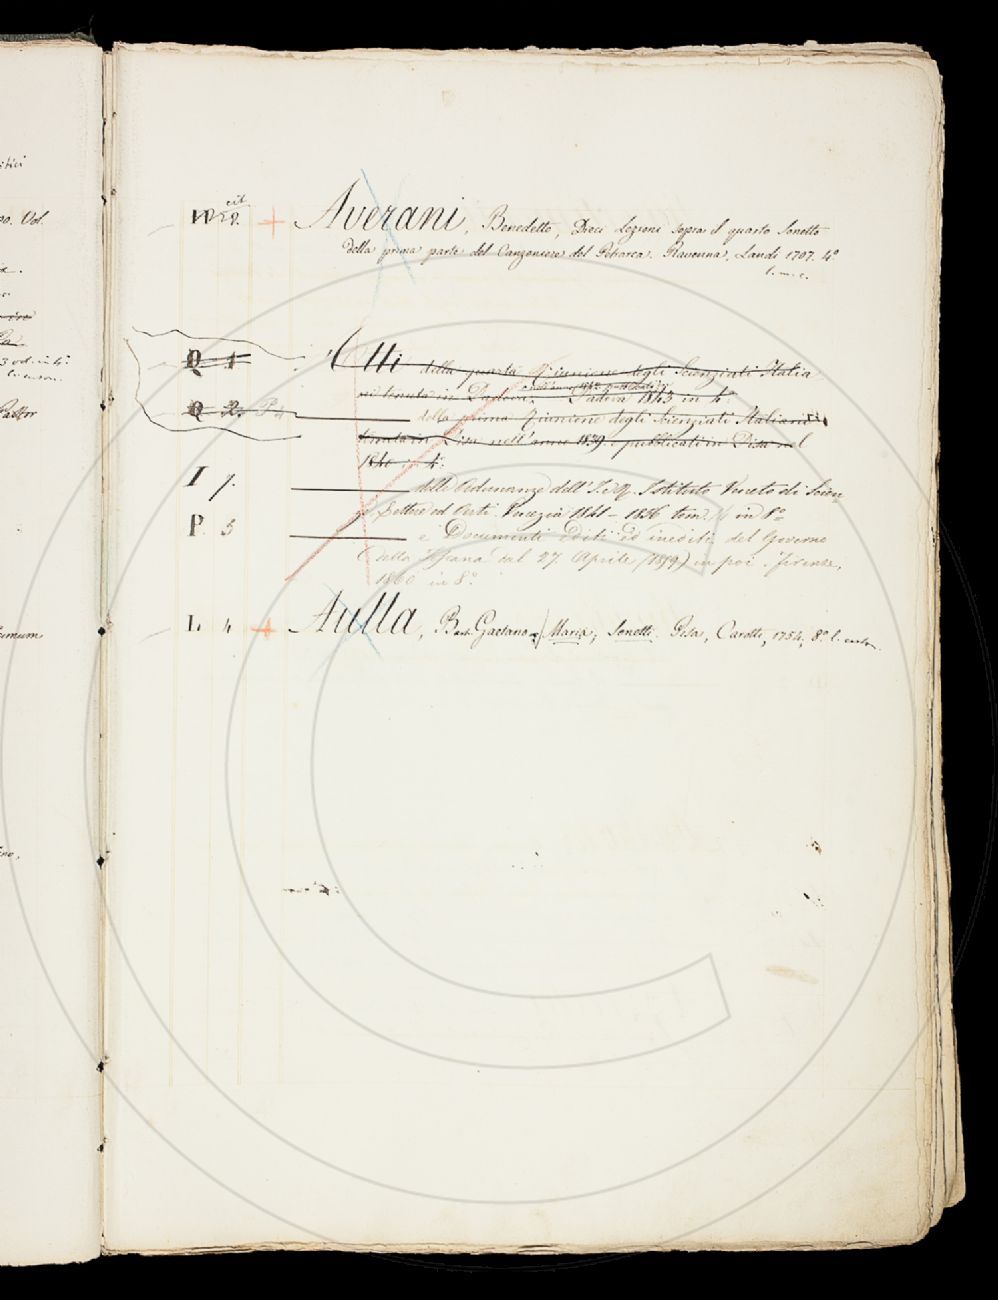 Averani, Benedetto, Dieci Lezioni sopra il quarto Sonetto
della prima parte del Canzoniere del Petrarca. Ravenna, Landi 1707. 4°
l. m. c.
Q 1 Atti della quarta Riunione degli Scienziati Italia
ni tenuta in Padova, Padova 1843 in 4°.
Q 2. P 4 della prima Riunione degli Scienziati Italiani
tenuta in Pisa nell'anno 1839. pubblicati in Pisa nel
1840 in 4°.
I 7. delle Adunanze dell' I. e R. Istituto Veneto di Scien
ze Lettere ed Arti. Venezia 1841 - 1846 tom. in 8°
P. 5 e Documenti editi ed inediti del Governo
della Toscana dal 27. Aprile (1859) in poi. Firenze,
1860 in 8°.
L. 4 + Aulla, Gaetano Maria, Sonetti. Pisa, Carotti, 1754, 8°